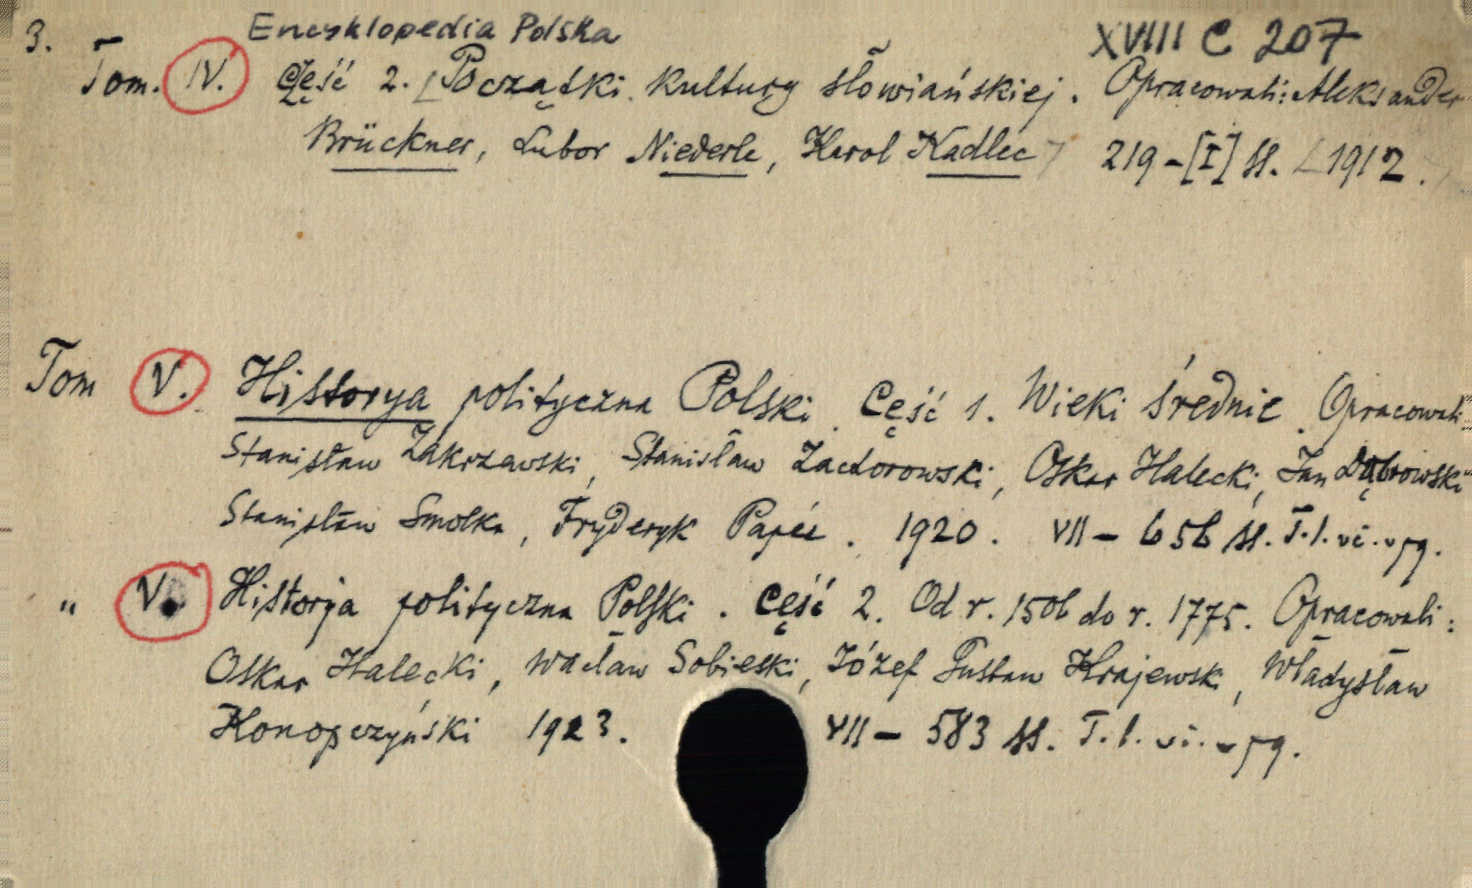 3. Encyklopedia Polska XVIII C 207
Tom. IV. Część 2. [Początki kultury słowiańskiej. Opracowali: Aleksander
Brückner, Lubor Niederle, Karol Kadlec] 219-[I] ss. [1912.]
Tom V. Historya polityczna Polski. Część 1. Wieki średnie. Opracowali:
Stanisław Zakrzewski, Stanisław Zachorowski, Oskar Halecki, Jan Dąbrowski
Stanisław Smolka, Fryderyk Papée. 1920. VII - 656 ss.
" V. Historja polityczna Polski. Część 2. Od r. 1506 do r. 1775. Opracowali:
Oskar Halecki, Wacław Sobieski, Józef Gustaw Krajewski, Władysław
Konopczyński 1923. VII - 583 ss.